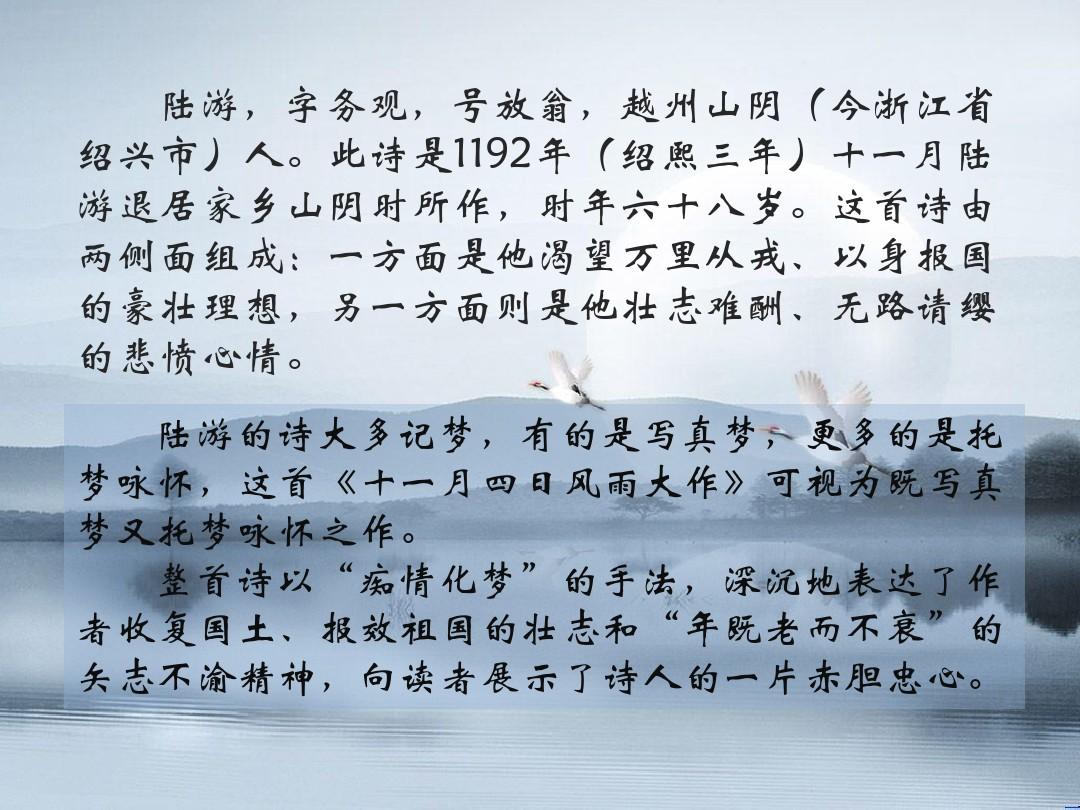 陆游，字务观，号放翁，越州山阴（今浙江省
绍兴市）人。此诗是1192年（绍熙三年）十一月陆
游退居家乡山阴时所作，时年六十八岁。这首诗由
两侧面组成：一方面是他渴望万里从戎、以身报国
的豪壮理想，另一方面则是他壮志难酬、无路请缨
的悲愤心情。
陆游的诗大多记梦，有的是写真梦，更多的是托
梦咏怀，这首《十一月四日风雨大作》可视为既写真
梦又托梦咏怀之作。
整首诗以“痴情化梦”的手法，深沉地表达了作
者收复国土、报效祖国的壮志和“年既老而不衰”的
矢志不渝精神，向读者展示了诗人的一片赤胆忠心。